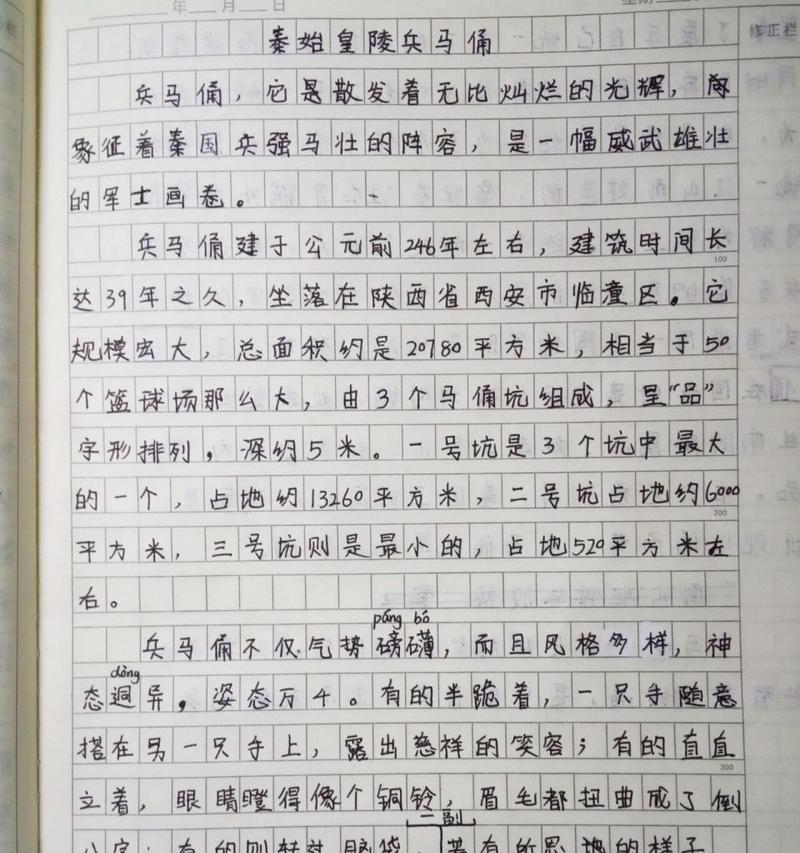 年 月 日
修正栏
秦始皇陵兵马俑
兵马俑，它是散发着无比灿烂的光辉，
象征着秦国兵强马壮的阵容，是一幅威武雄壮
的军士画卷。
兵马俑建于公元前246年左右，建筑时间长
100
达39年之久，坐落在陕西省西安市临潼区。它
规模宏大，总面积约是20780平方米，相当于50
个篮球场那么大，由3个马俑坑组成，呈“品”
字形排列，深约5米。一号坑是3个坑中最大
的一个，占地约13260平方米，二号坑占地约6000
200
平方米，三号坑则是最小的，占地520平方米左
右。
páng bó
兵马俑不仅气势磅礴，而且风格多样，神
dòng
态迥异，姿态万千。有的半跪着，一只手随意
搭在另一只手上，露出慈祥的笑容；有的直直
300
立着，眼睛瞪得像个铜铃，眉毛都扭曲成了倒
一副
八字；有的则转动脑袋，若有所思地的样子